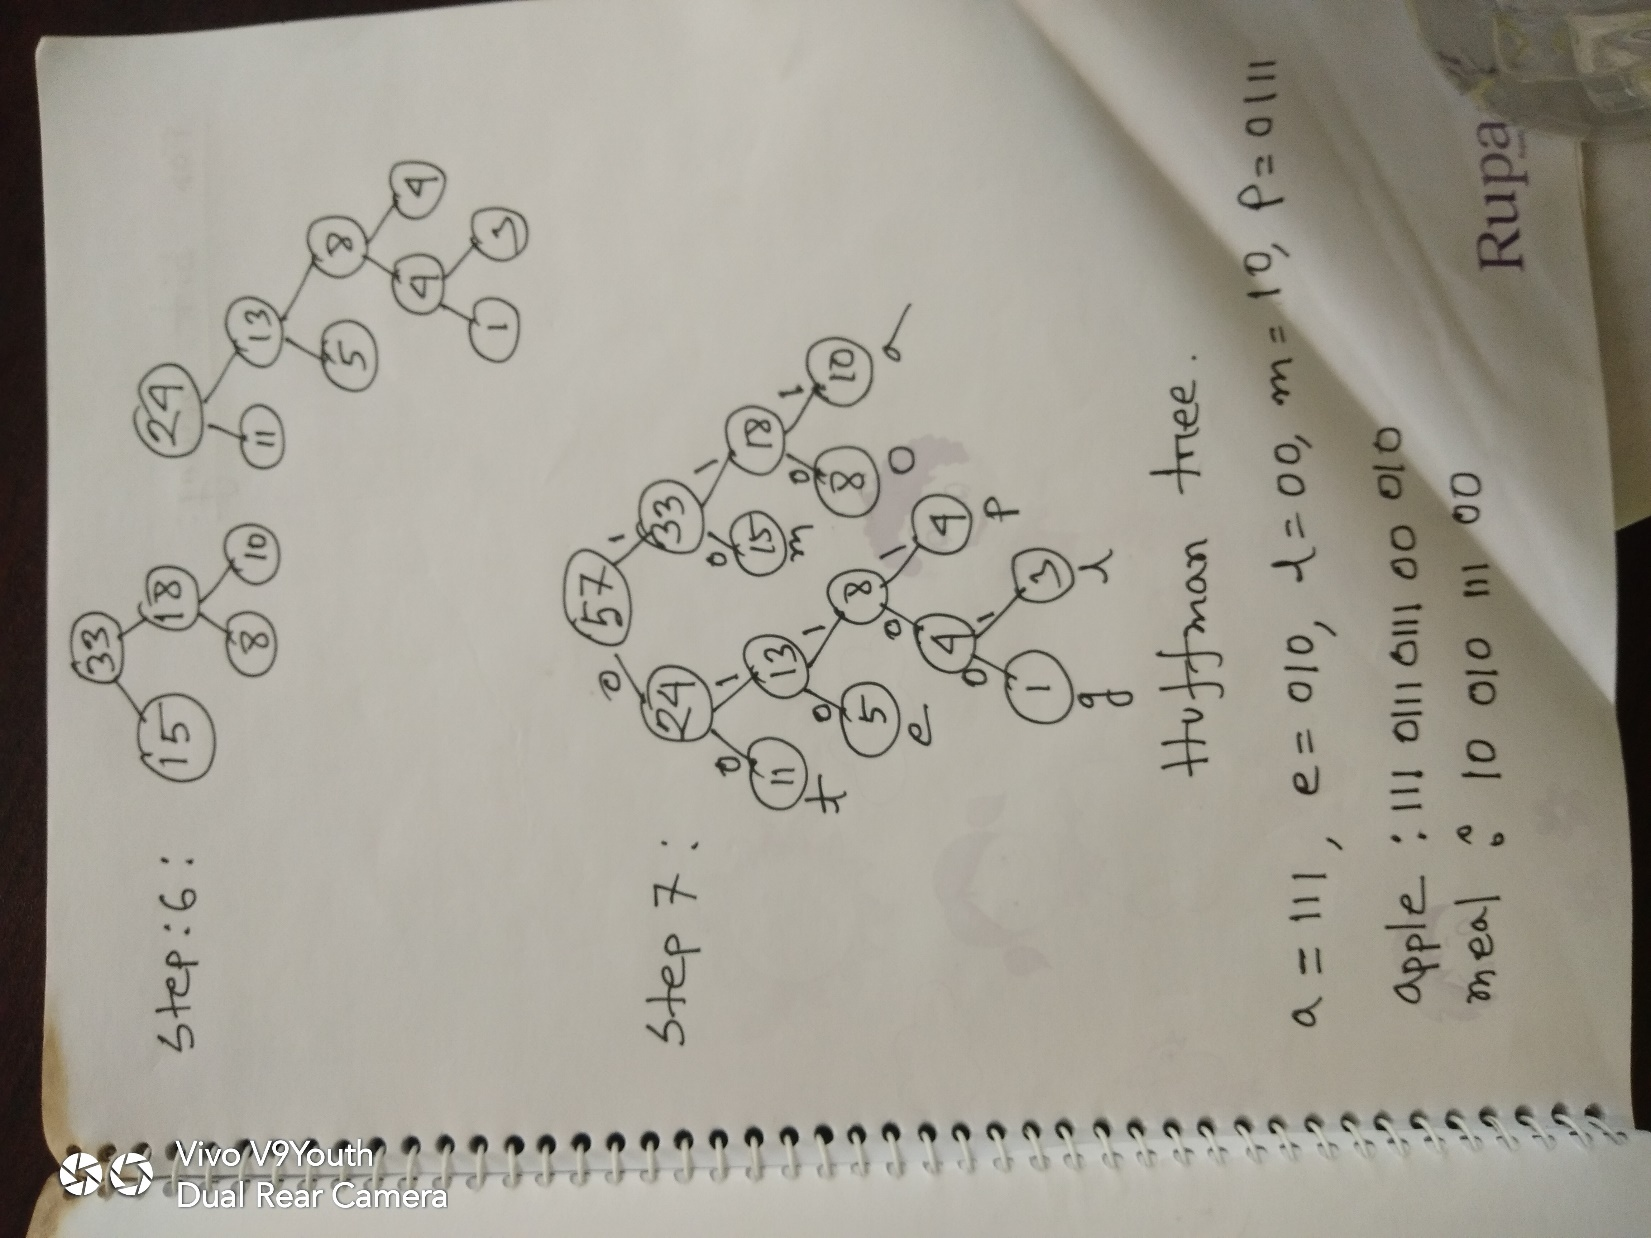 Step:6:
33
15 18
8 10
24
11 13
5 8
4 4
1 3
Step 7:
57
0 1
24 33
0 1 0 1
11 13 15 18
t m
0 1 0 1
5 8 8 10
e o a
0 1
4 4
p
0 1
1 3
g
Huffman tree.
a = 111, e = 010, l = 00, m = 10, p = 0111
apple : 111 0111 0111 00 010
meal : 10 010 111 00
Rupa
Vivo V9Youth
Dual Rear Camera